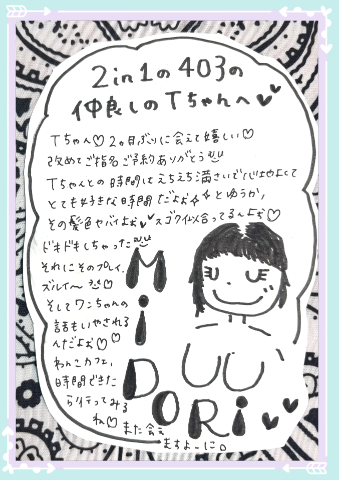 2in1の403の
仲良しのTちゃんへ♥♥
Tちゃん♡2ヵ月ぶりに会えて嬉しい♡
改めてご指名ご予約ありがとう
Tちゃんとの時間はえちえち満さいで心地よくて
とても好きな時間だよぉ✧✧とゆうか、
その髪色ヤバイよぉ♥♥スゴク似合ってるんよぉ♡
ドキドキしちゃった
それにそのプレイ、
ズルイ〜♡
そしてワンちゃんの
話もいやされる
んだよぉ♡♡
わんこカフェ、
時間できた
ら行ってみる
ね♡また会え
ますよーに。
MiDORi